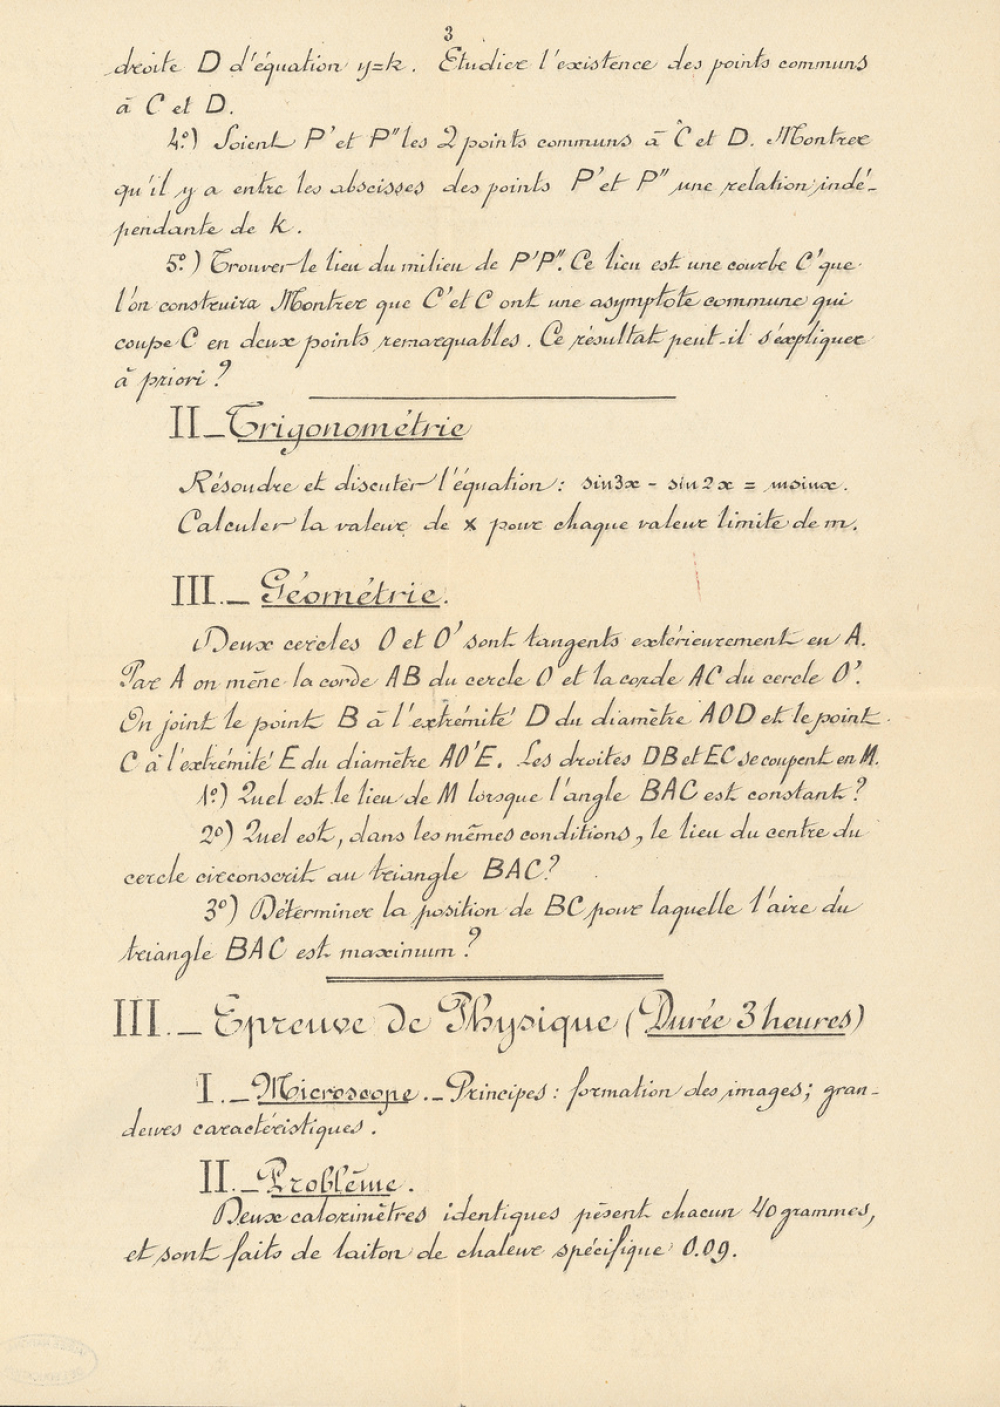 3
droite D d'équation y=k. Etudier l'existence des points communs
à C et D.
4º) Soient P' et P" les 2 points communs à C et D. Montrer
qu'il y a entre les abscisses des points P' et P" une relation indé-
pendante de k.
5º) Trouver le lieu du milieu de P'P". Ce lieu est une courbe C' que
l'on construira Montrer que C' et C ont une asymptote commune qui
coupe C en deux points remarquables. Ce résultat peut-il s'expliquer
à priori ?
II_Trigonométrie
Résoudre et discuter l'équation : sin3x - sin2x = msinx.
Calculer la valeur de x pour chaque valeur limite de m.
III._ Géométrie.
Deux cercles O et O' sont tangents extérieurement en A.
Par A on mène la corde AB du cercle O et la corde AC du cercle O'.
On joint le point B à l'extrémité D du diamètre AOD et le point
C à l'extrémité E du diamètre AO'E. Les droites DB et EC se coupent en M.
1º) Quel est le lieu de M lorsque l'angle BAC est constant ?
2º) Quel est, dans les mêmes conditions, le lieu du centre du
cercle circonscrit au triangle BAC ?
3º) Déterminer la position de BC pour laquelle l'aire du
triangle BAC est maximum ?
III._ Epreuve de Physique (Durée 3 heures)
I._Microscope._Principes : formation des images ; gran-
deurs caractéristiques.
II._Problème.
Deux calorimètres identiques pèsent chacun 40 grammes,
et sont faits de laiton de chaleur spécifique 0.09.